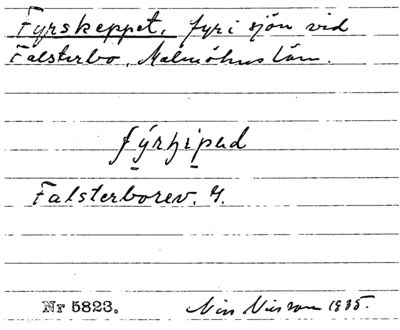 Fyrskeppet, fyr i sjön vid
Falsterbo, Malmöhus län.
fýrḥipəd
Falsterborev. 4.
Nr 5823. Nils Nilsson 1935.